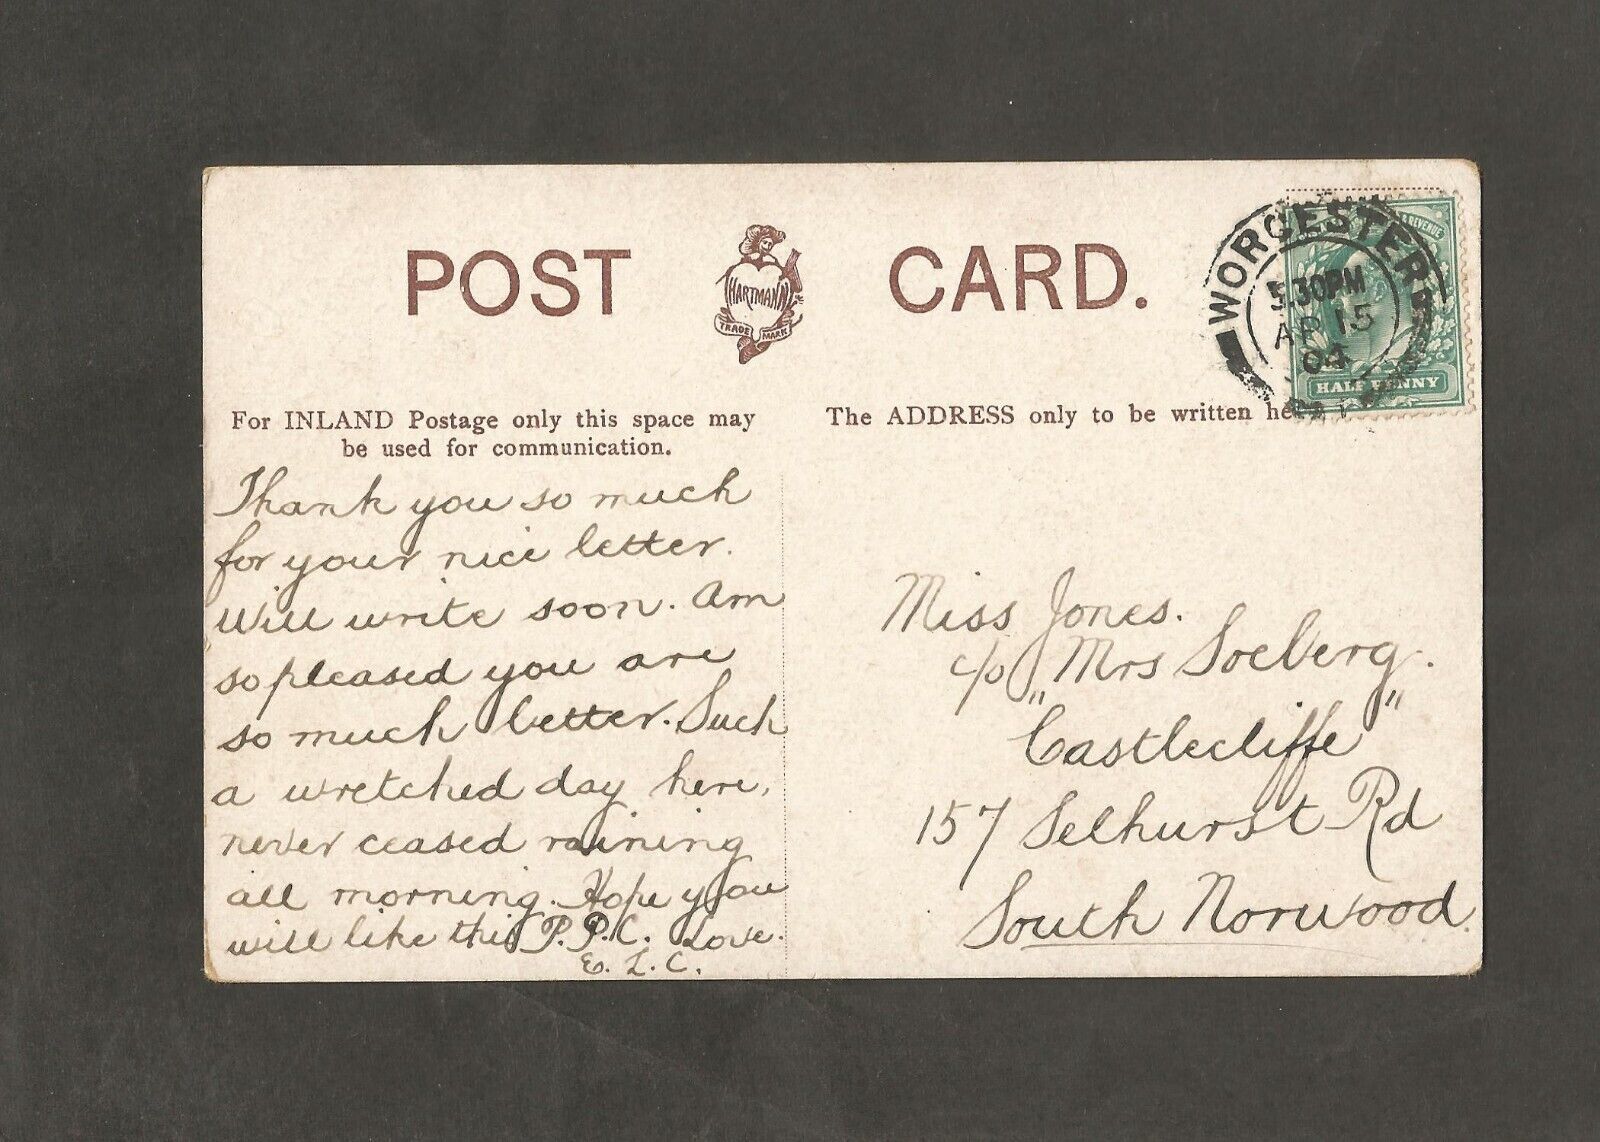 POST CARD.
HARTMANN
TRADE MARK
WORCESTER
5.30PM
AP 15
04
REVENUE
HALF PENNY
For INLAND Postage only this space may
be used for communication.
The ADDRESS only to be written he
Thank you so much
for your nice letter.
Will write soon. Am
so pleased you are
so much better. Such
a wretched day here,
never ceased raining
all morning. Hope you
will like this P.P.C. Love.
E. L. C.
Miss Jones.
c/o Mrs Soeberg.
"Castlecliffe"
157 Selhurst Rd
South Norwood.